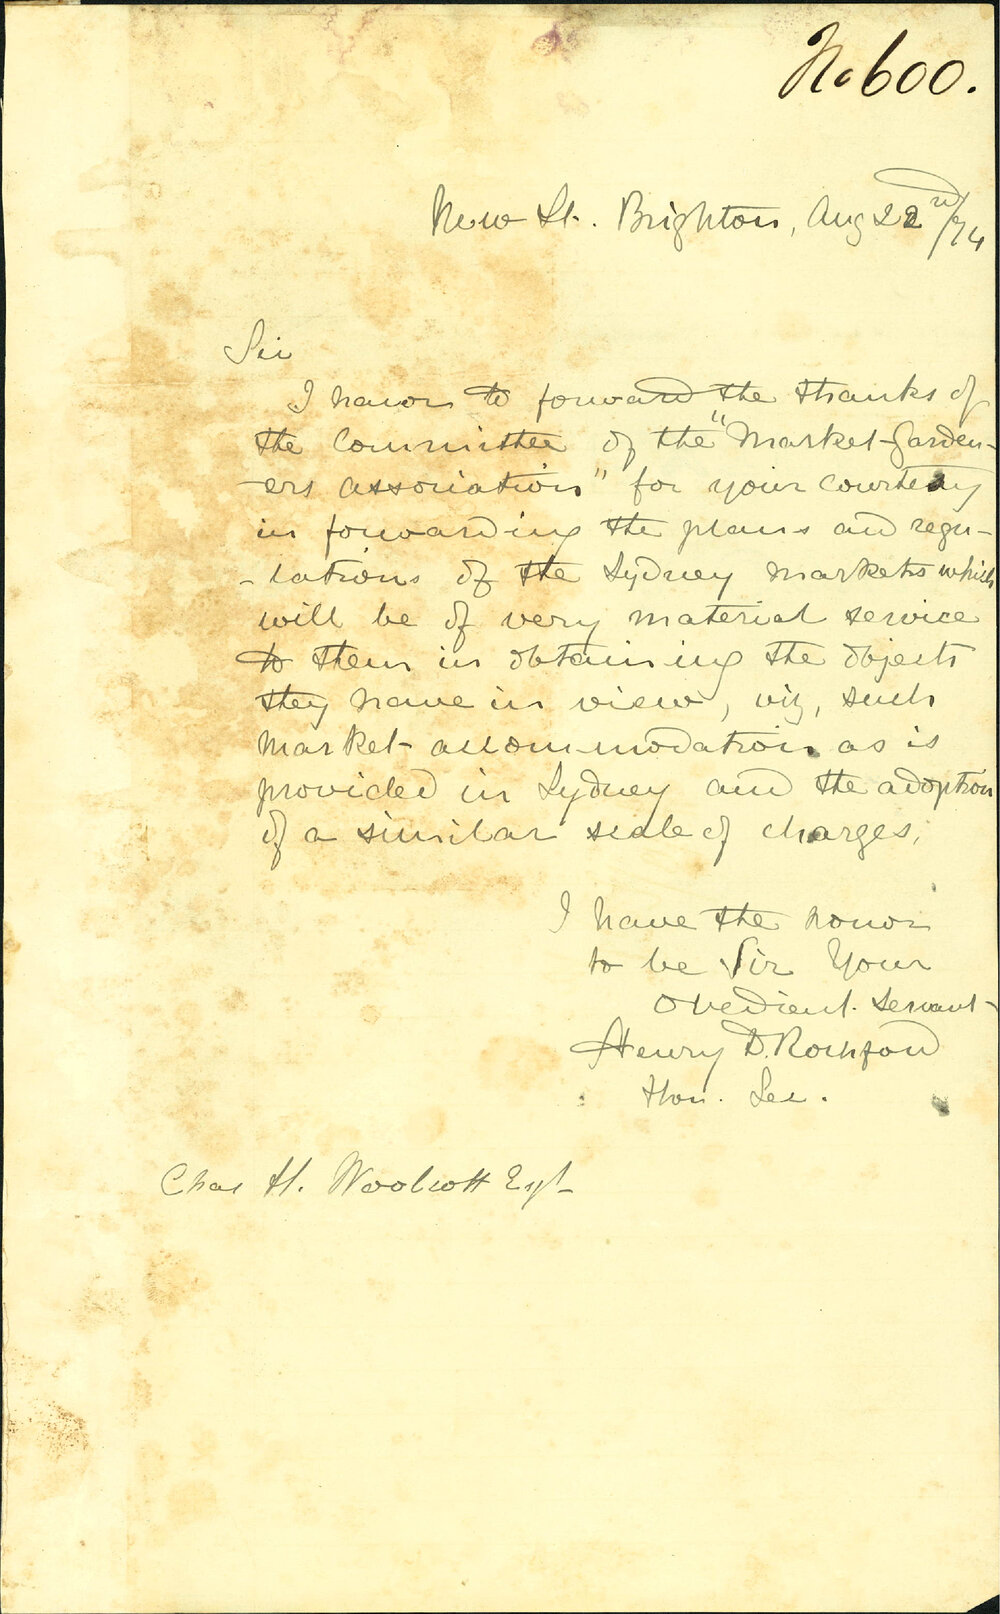 No 600.
New St. Brighton, Aug 22nd/74
Sir
I have to forward the thanks of
the Committee of the "Market-Garden-
-ers association" for your courtesy
in forwarding the plans and regu-
-lations of the Sydney markets which
will be of very material service
to them in obtaining the objects
they have in view, viz, such
market accommodation as is
provided in Sydney and the adoption
of a similar scale of charges.
I have the honor
to be Sir Your
obedient servant
Henry D. Rochford
Hon. Sec.
Chas H. Woolcott Esqt